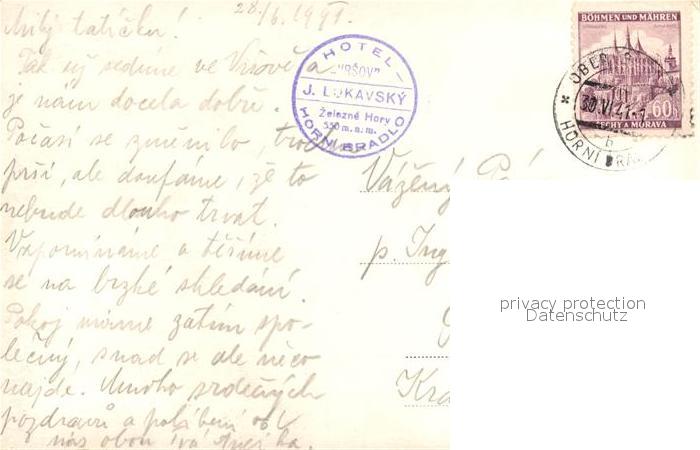 28./6. 1941.
Milý tatíčku!
Tak už sedíme ve Vršově a
je nám docela dobře.
Počasí se změnilo, trochu
prší, ale doufáme, že to
nebude dlouho trvat.
Vzpomínáme a těšíme
se na brzké shledání.
Pokoj máme zatím spo-
lečný, snad se ale něco
najde. Mnoho srdečných
pozdravů a políbení od
nás obou
HOTEL
"VRŠOV"
J. LUKAVSKÝ
Železné Hory
550 m. n. m.
HORNÍ BRADLO
BÖHMEN UND MÄHREN
60h
ČECHY A MORAVA
OBER
30.VI.41
b
HORNÍ BRA
Vážený Pá
p. Ing
Kra
privacy protection
Datenschutz